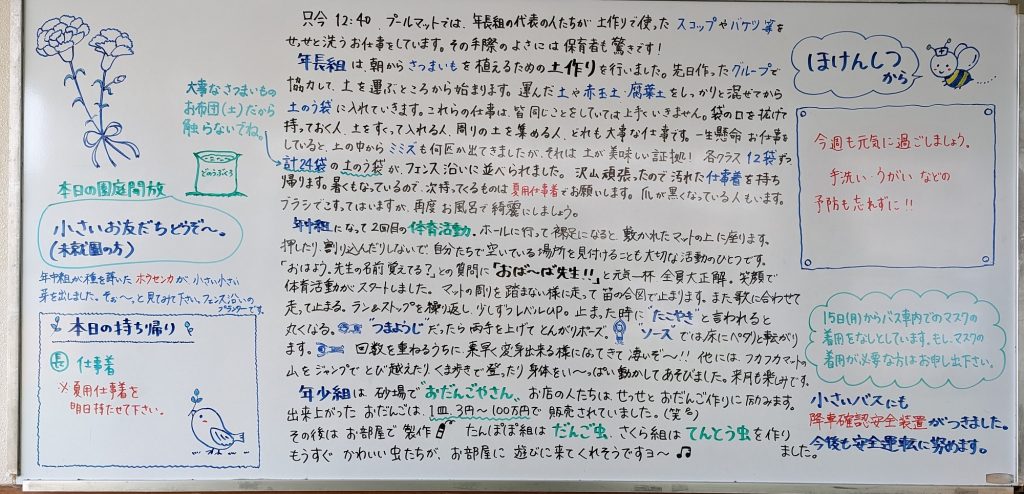 只今 12:40. プールマットでは、年長組の代表の人たちが 土作りで使った スコップやバケツ等を
せっせと洗うお仕事をしています。その手際のよさには 保育者も驚きです!
年長組は 朝から さつまいもを 植えるための 土作りを行いました。先日作ったグループで
協力して、土を運ぶところから始まります。運んだ土や赤玉土・腐葉土をしっかりと混ぜてから
土のう袋に入れていきます。これらの仕事は 皆同じことをしていては上手くいきません。袋の口を拡げて
持っておく人、土をすくって入れる人、周りの土を集める人、どれも大事な仕事です。一生懸命お仕事を
していると、土の中から ミミズも何匹か出てきましたが、それは 土が美味しい証拠! 各クラス 12袋ずつ
計24袋の土のう袋が、フェンス沿いに並べられました。沢山頑張ったので汚れた仕事着を持ち
帰ります。暑くもなっているので、次持ってくるものは 夏用仕事着でお願いします。爪が黒くなっている人もいます。
ブラシでこすってはいますが、再度お風呂で綺麗にしましょう。
年中組になって2回目の体育活動。ホールに行って裸足になると、敷かれたマットの上に座ります。
押したり、割り込んだりしないで、自分たちで空いている場所を見付けることも大切な活動のひとつです。
「おはよう。先生の名前覚えてる?」との質問に「おば〜ば先生!!」と元気一杯 全員大正解。笑顔で
体育活動がスタートしました。マットの周りを踏まない様に走って 笛の合図で止まります。また歌に合わせて
走って止まる。ラン&ストップを繰り返し、少しずつレベルUP。止まった時に"たこやき"と言われると
丸くなる。"つまようじ"だったら両手を上げて とんがりポーズ。"ソース"では床にペタリと転がり
ます。回数を重ねるうちに、素早く変身出来る様になってきて凄いぞ〜!! 他には、フカフカマットの
山をジャンプで とび越えたり くま歩きで登ったり 身体をい〜っぱい動かしてあそびました。来月も楽しみです。
年少組は 砂場で"おだんごやさん"。お店の人たちは、せっせとおだんご作りに励みます。
出来上がった おだんごは、1皿、3円〜100万円で 販売されていました。(笑)
その後は お部屋で 製作 たんぽぽ組は だんご虫、さくら組は てんとう虫を作りました。
もうすぐ かわいい虫たちが、お部屋に 遊びに来てくれそうですヨ〜♫
大事なさつまいもの
お布団(土)だから
触らないでね。
どのうぶくろ
本日の園庭開放
小さいお友だちどうぞ〜。
(未就園の方)
年中組が種を蒔いた ホウセンカが、小さい小さい
芽を出しました。そぉ〜っと見てみて下さい。フェンス沿いの
プランターです。
本日の持ち帰り
長 仕事着
※夏用仕事着を
明日持たせて下さい。
ほけんしつ
から
今週も元気に過ごしましょう。
手洗い・うがい などの
予防も忘れずに!!
15日(月)からバス車内でのマスクの
着用をなしとしています。もし、マスクの
着用が必要な方はお申し出下さい。
小さいバスにも
降車確認安全装置がつきました。
今後も安全運転に努めます。